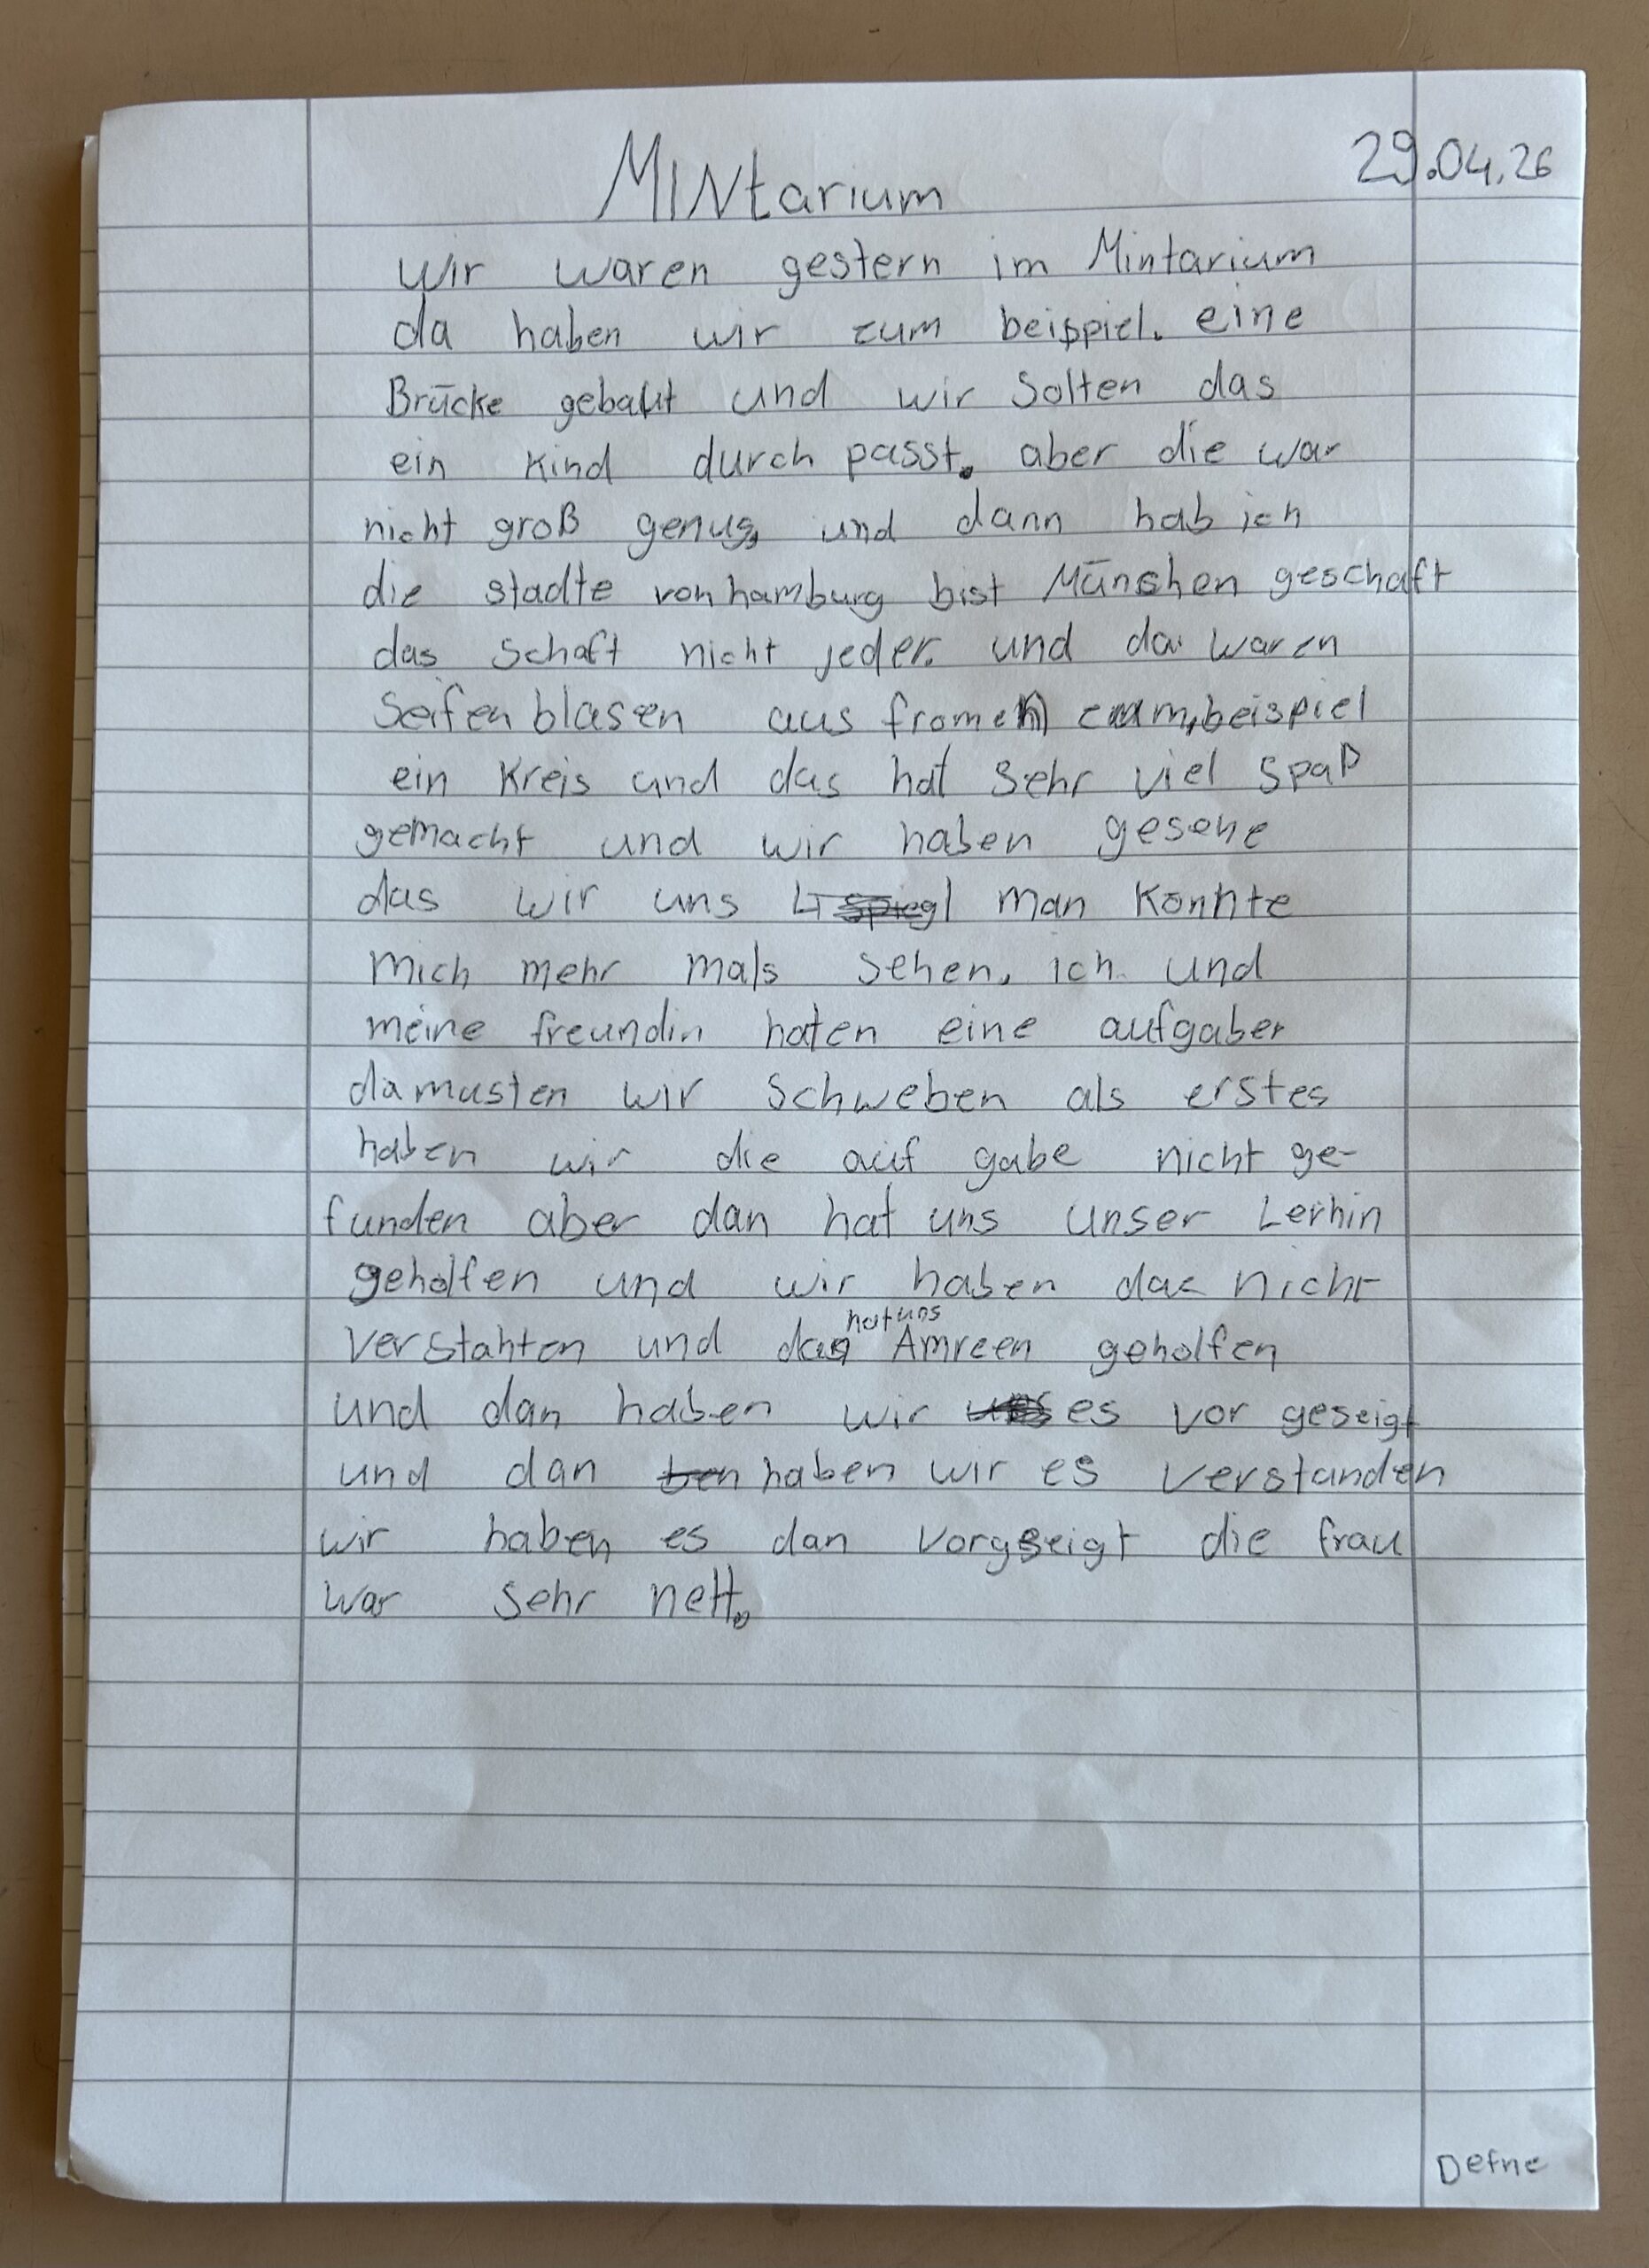 MINtarium
29.04.26
Wir waren gestern im Mintarium
da haben wir zum beispiel. eine
Brücke gebaut und wir Solten das
ein Kind durch passt. aber die war
nicht groß genug, und dann hab ich
die stadte von hamburg bist Münshen geschaft
das Schaft nicht jeder. und da waren
Seifen blasen aus fromen zum beispiel
ein Kreis und das hat Sehr viel Spaß
gemacht und wir haben gesehe
das wir uns man Konnte
mich mehr mals sehen. ich und
meine freundin haten eine aufgaber
damusten wir Schweben als erstes
haben wir die auf gabe nicht ge-
funden aber dan hat uns unser Lerhin
geholfen und wir haben das nicht
verstahten und dan hat uns Amreen geholfen
und dan haben wir es vor geseigt
und dan haben wir es verstanden
wir haben es dan vorgseigt die frau
war sehr nett.
Defne